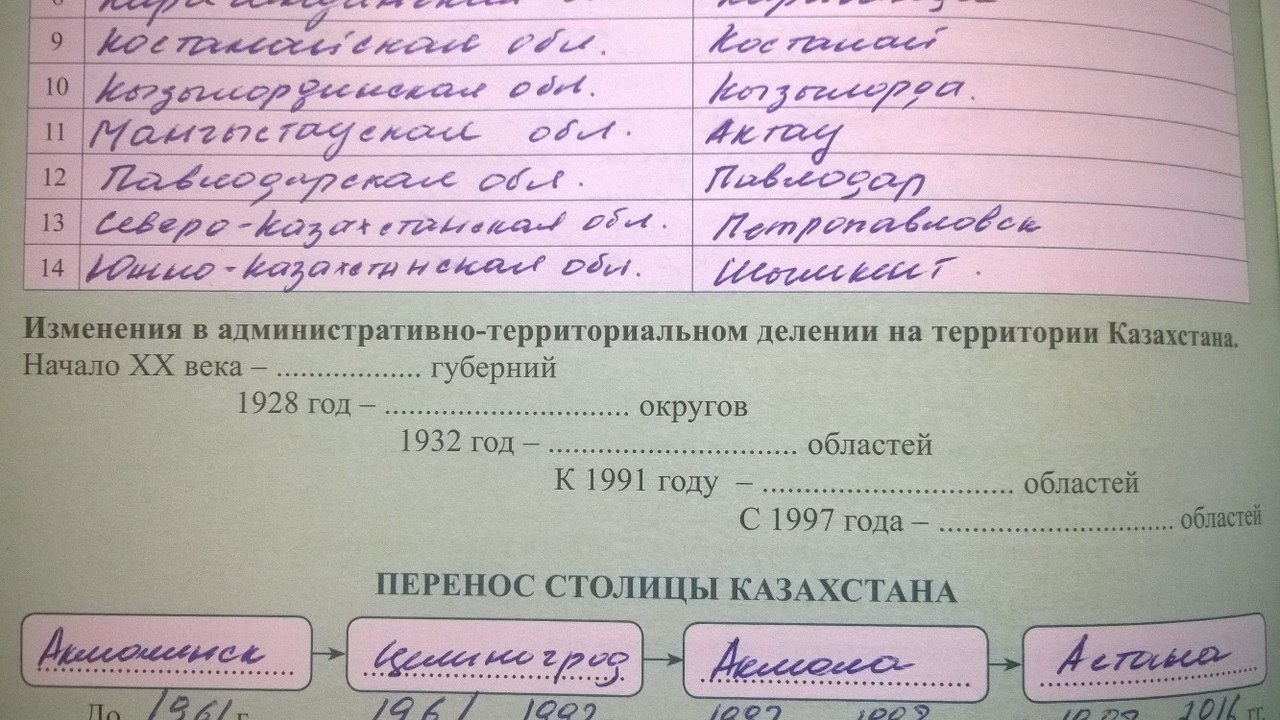 8 Карагандинская обл. Караганда
9 Костанайская обл. Костанай
10 Кызылординская обл. Кызылорда.
11 Мангыстауская обл. Актау
12 Павлодарская обл. Павлодар
13 Северо-Казахстанская обл. Петропавловск
14 Южно-Казахстанская обл. Шымкент.
Изменения в административно-территориальном делении на территории Казахстана.
Начало XX века – .................. губерний
1928 год – .............................. округов
1932 год – ............................... областей
К 1991 году – ............................... областей
С 1997 года – ............................. областей
ПЕРЕНОС СТОЛИЦЫ КАЗАХСТАНА
Акмолинск Целиноград Акмола Астана
До 1961 г. 1961 1992 1992 1998 1998 2016 гг.